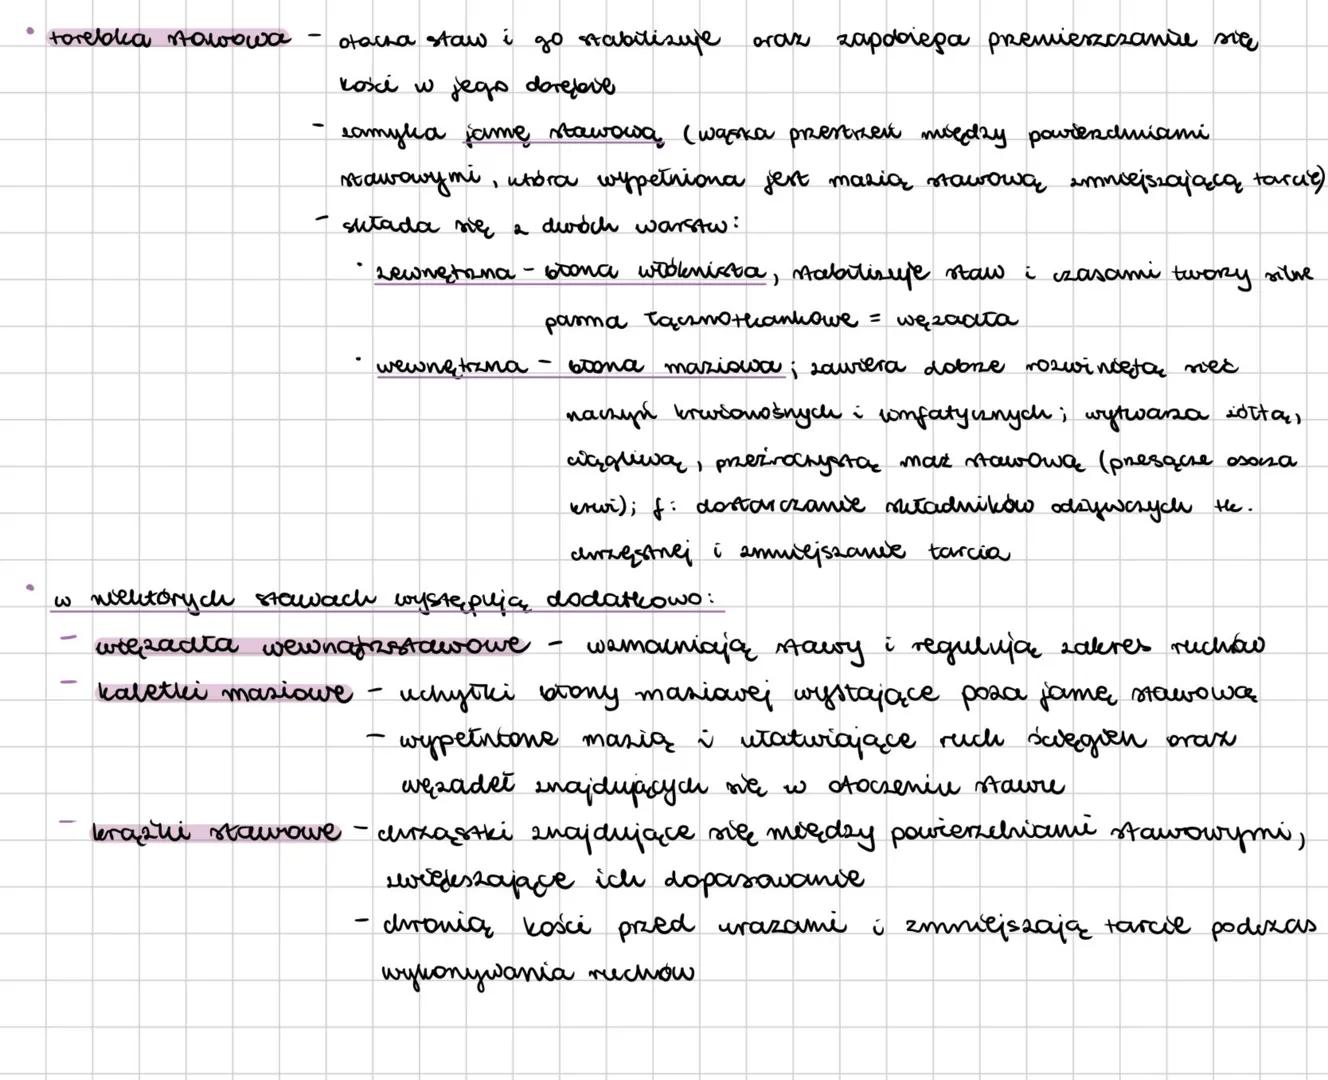 • torebka stawowa - otacza staw i go stabilizuje oraz zapobiega przemieszczaniu się
kości w jego obrębie
- zamyka jamę stawową (wąska przestrzeń między powierzchniami
stawowymi, która wypełniona jest mazią stawową zmniejszającą tarcie)
- składa się z dwóch warstw:
• zewnętrzna - błona włóknista, stabilizuje staw i czasami tworzy silne
pasma łącznotkankowe = więzadła
• wewnętrzna - błona maziowa; zawiera dobrze rozwiniętą sieć
naczyń krwionośnych i limfatycznych; wytwarza żółtą,
ciągliwą, przeźroczystą maź stawową (przesącze osocza
krwi); f: dostarczanie składników odżywczych tk.
chrzęstnej i zmniejszanie tarcia
• w niektórych stawach występują dodatkowo:
- więzadła wewnątrzstawowe - wzmacniają stawy i regulują zakres ruchów
- kaletki maziowe - uchyłki błony maziowej wystające poza jamę stawową
- wypełnione mazią i ułatwiające ruch ścięgien oraz
więzadeł znajdujących się w otoczeniu stawu
- krążki stawowe - chrząstki znajdujące się między powierzchniami stawowymi,
zwiększające ich dopasowanie
- chronią kości przed urazami i zmniejszają tarcie podczas
wykonywania ruchów